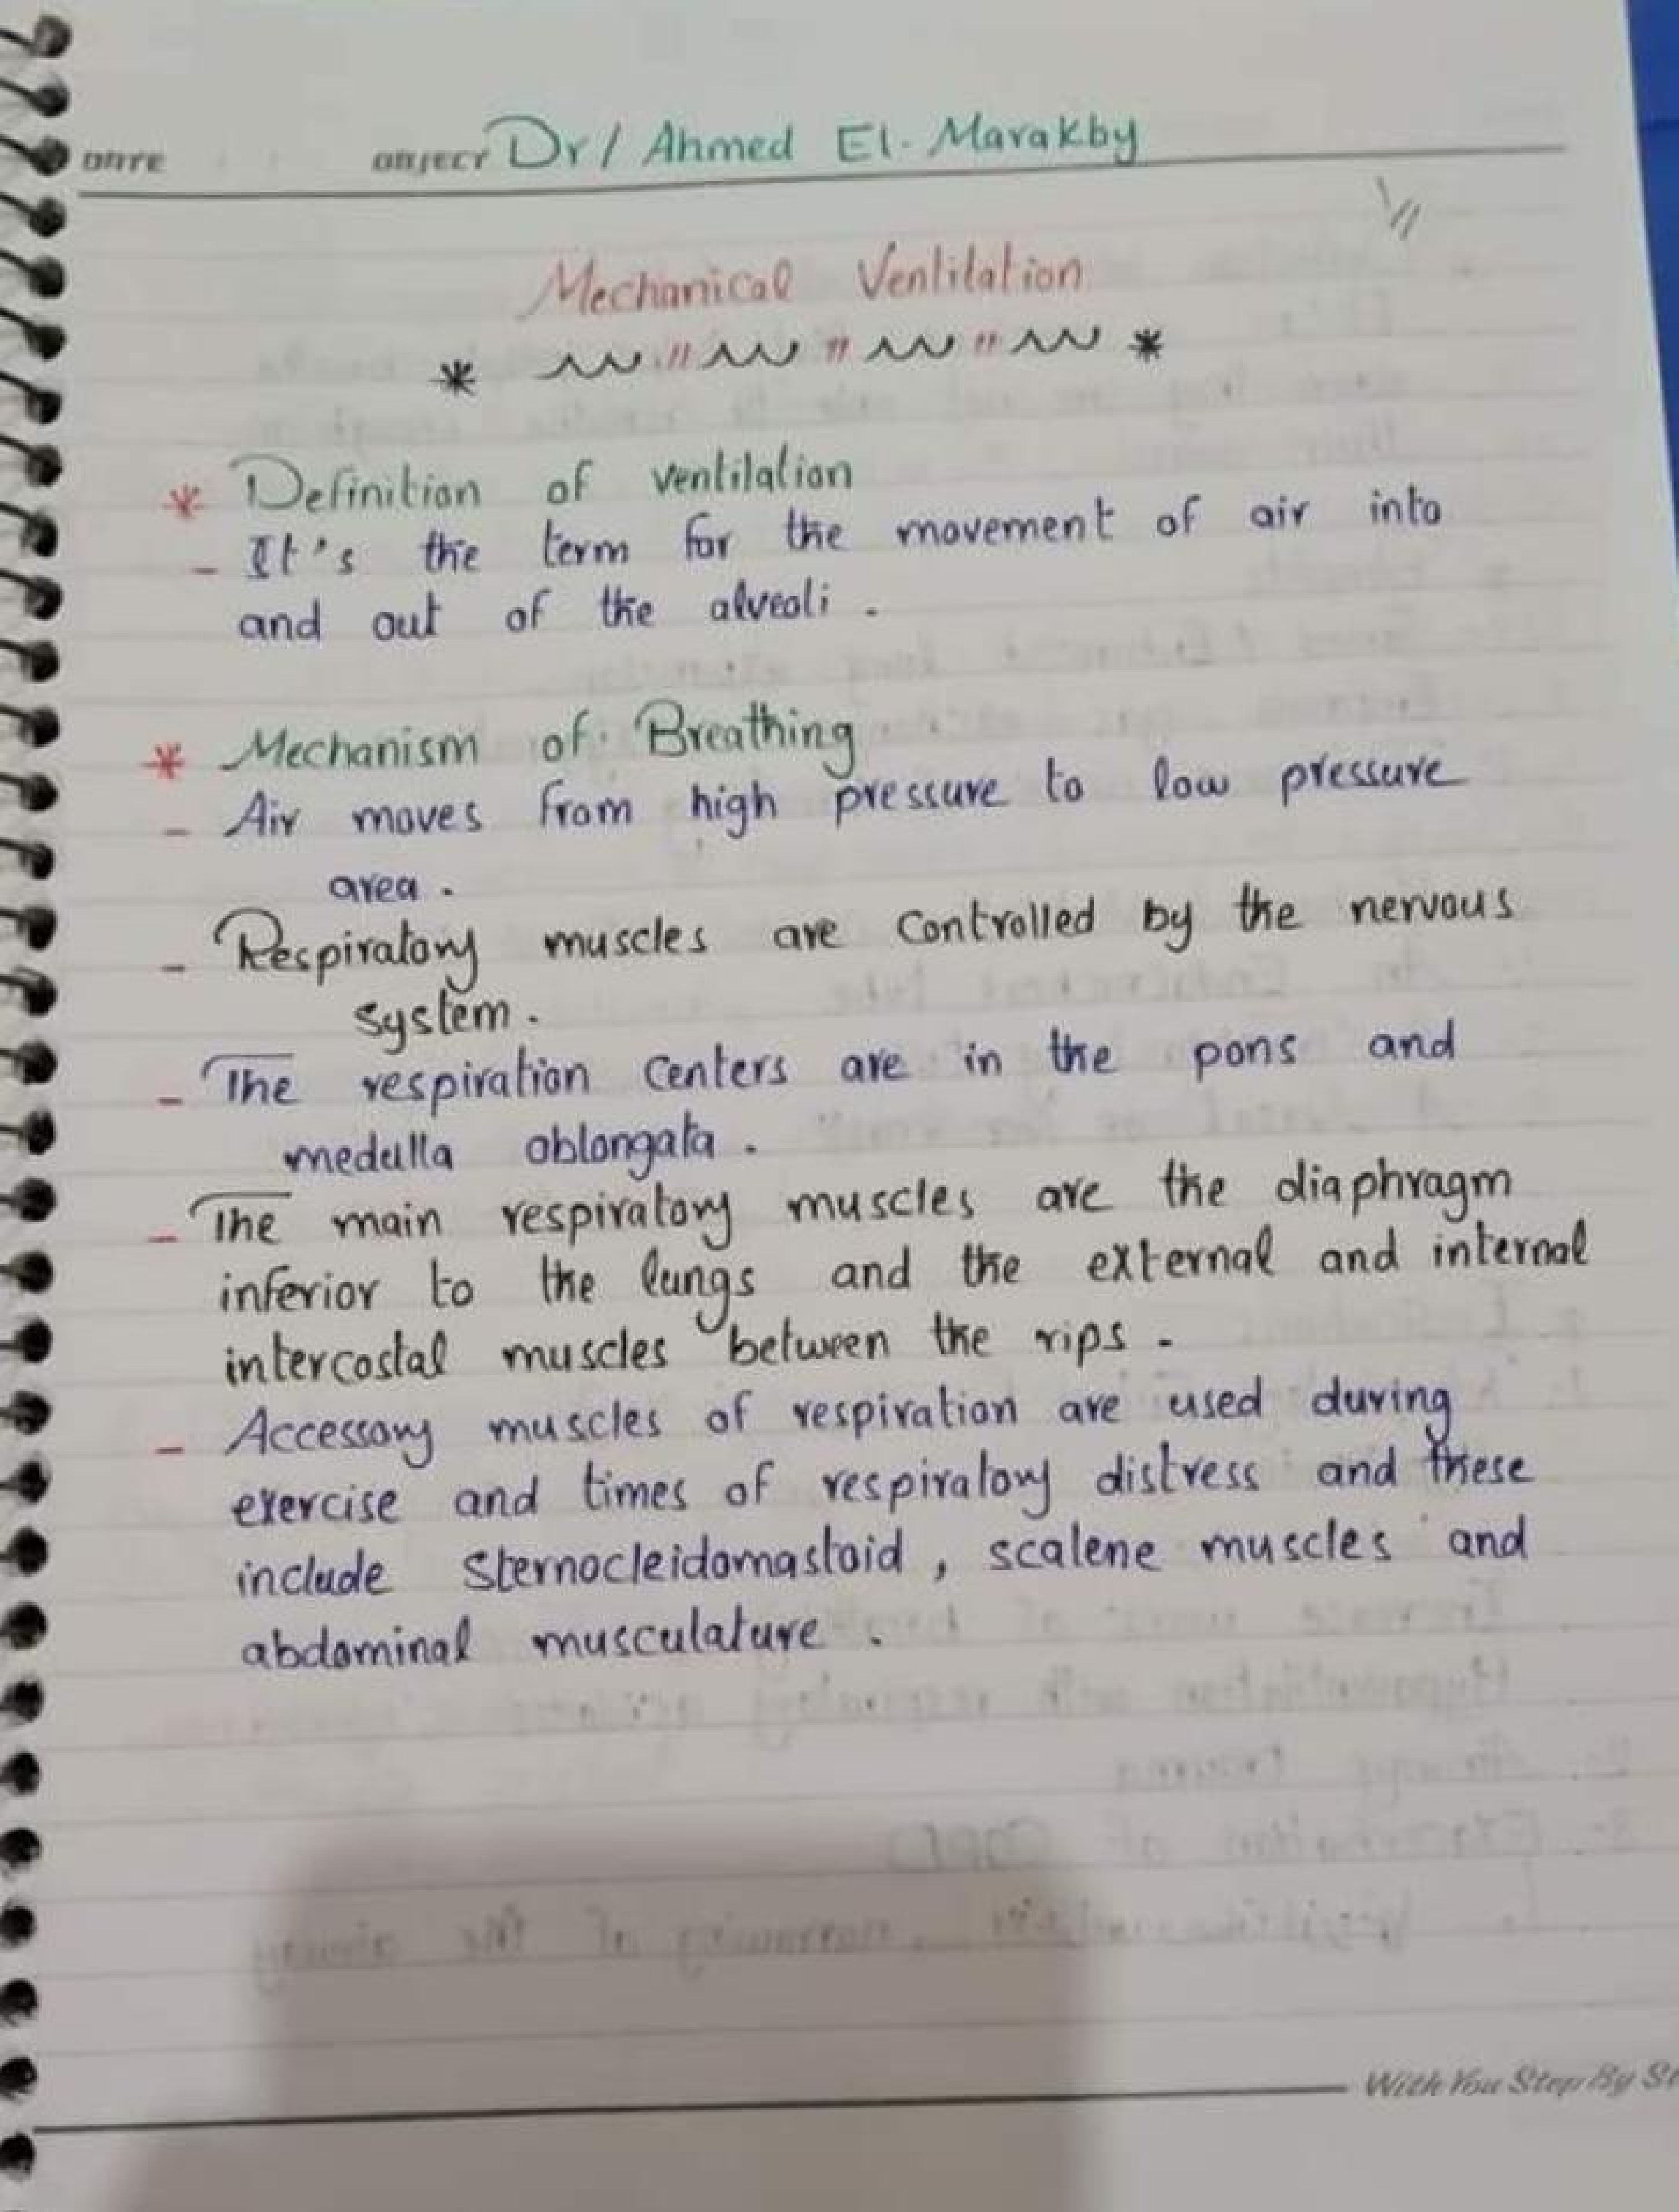 DATE OBJECT Dr/ Ahmed El. Marakby
Mechanical Ventilation
* Definition of ventilation
- It's the term for the movement of air into
and out of the alveoli .
* Mechanism of Breathing
- Air moves from high pressure to low pressure
area .
- Respiratory muscles are controlled by the nervous
system .
- The respiration centers are in the pons and
medulla oblongata .
- The main respiratory muscles are the diaphragm
inferior to the lungs and the external and internal
intercostal muscles between the rips .
- Accessory muscles of respiration are used during
exercise and times of respiratory distress and these
include Sternocleidomastoid , scalene muscles and
abdominal musculature .
With You Step By St